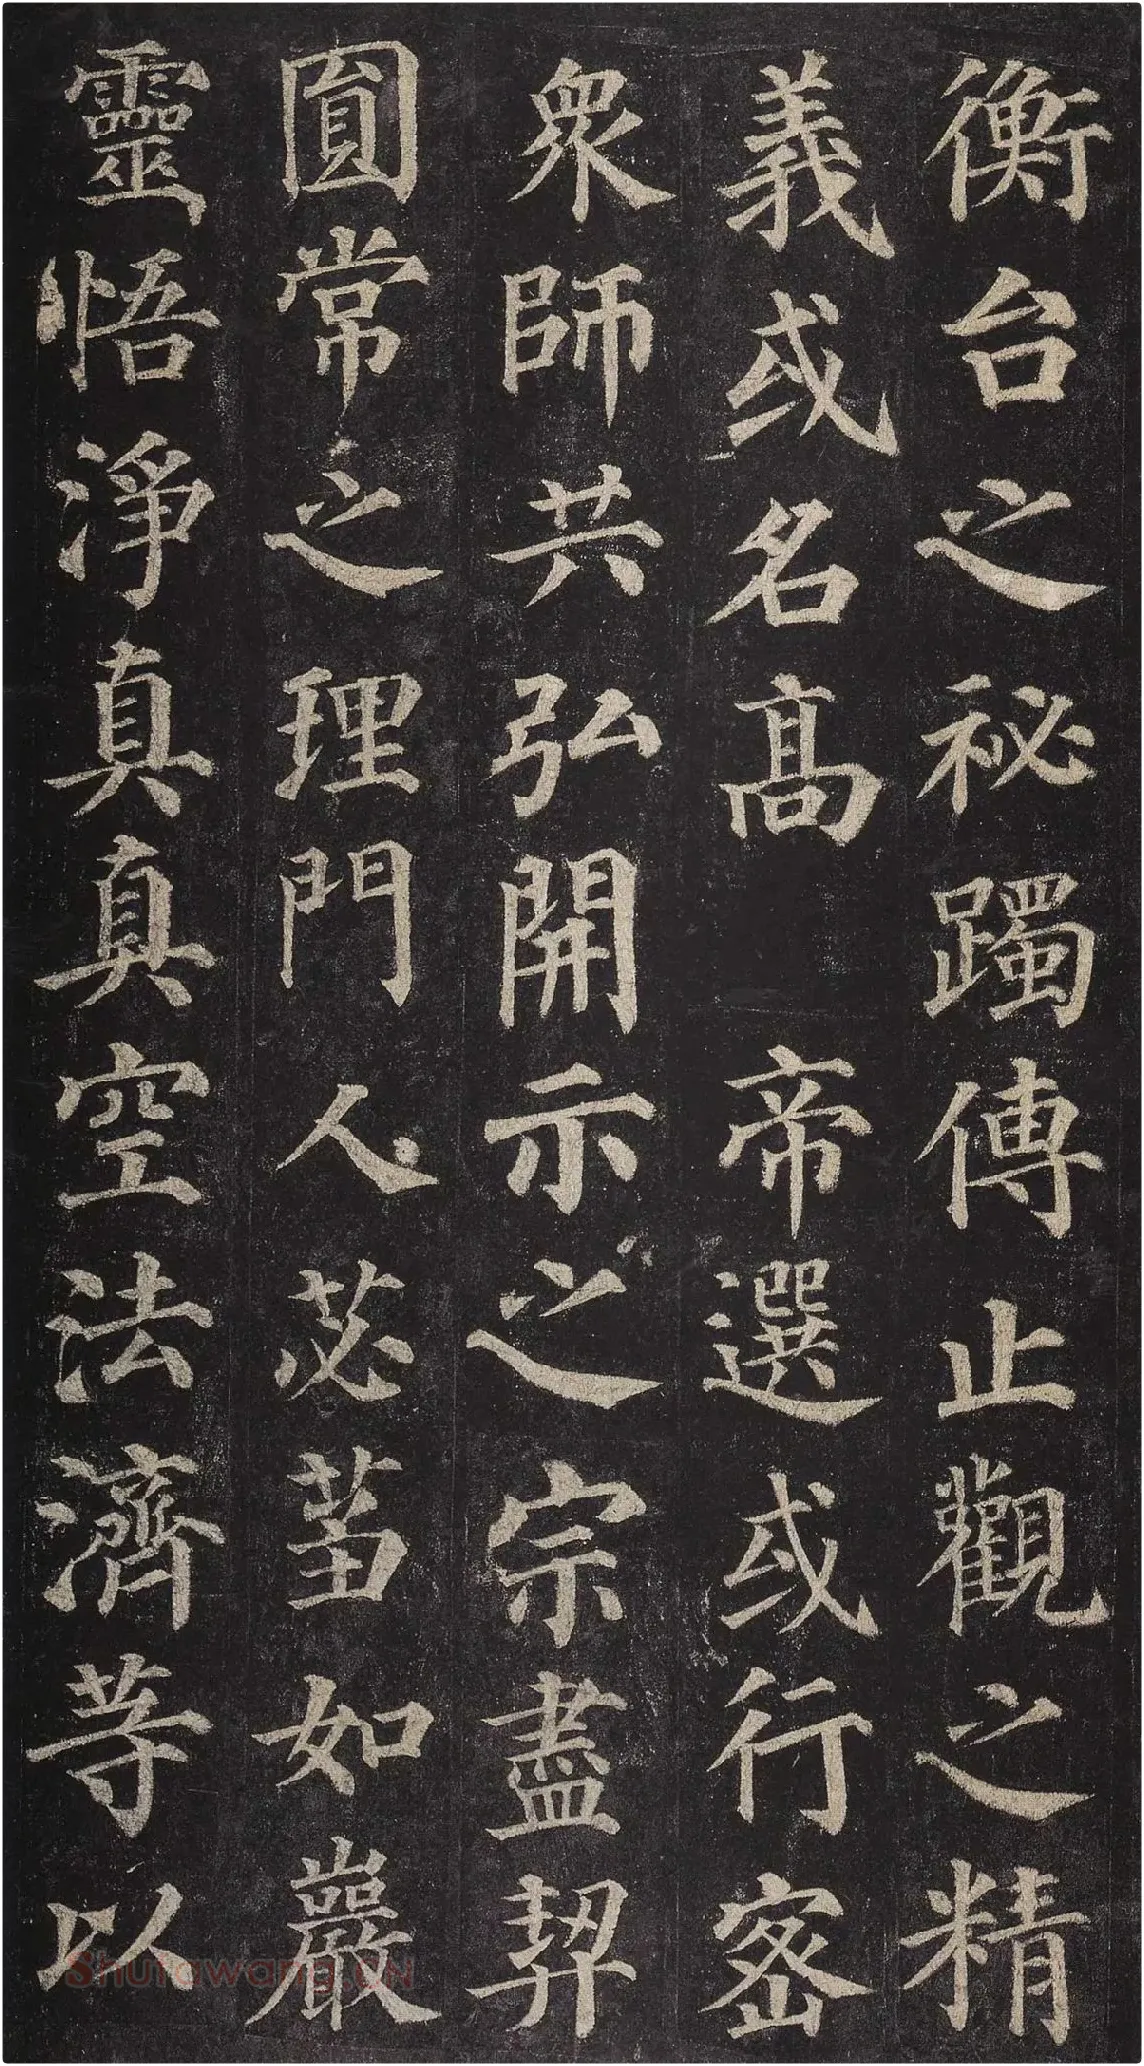 衡台之祕躅傳止觀之精
義或名高 帝選或行密
衆師共弘開示之宗盡契
圎常之理門人苾蒭如巖
靈悟淨真真空法濟等以
Shufawang.CN